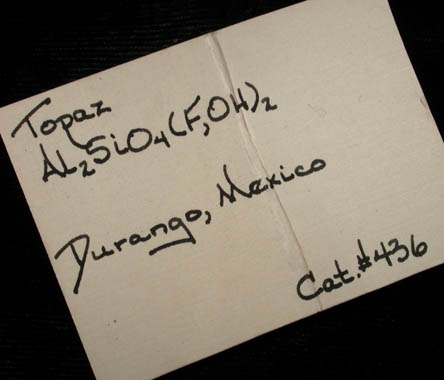 Topaz
AL₂SiO₄(F,OH)₂
Durango, Mexico
Cat.#436